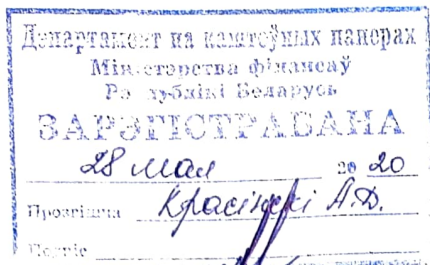 Дэпартамент па каштоўных паперах
Міністэрства фінансаў
Рэспублікі Беларусь
ЗАРЭГІСТРАВАНА
28 мая 2020
Прозвішча Красінскі А.Д.
Подпіс